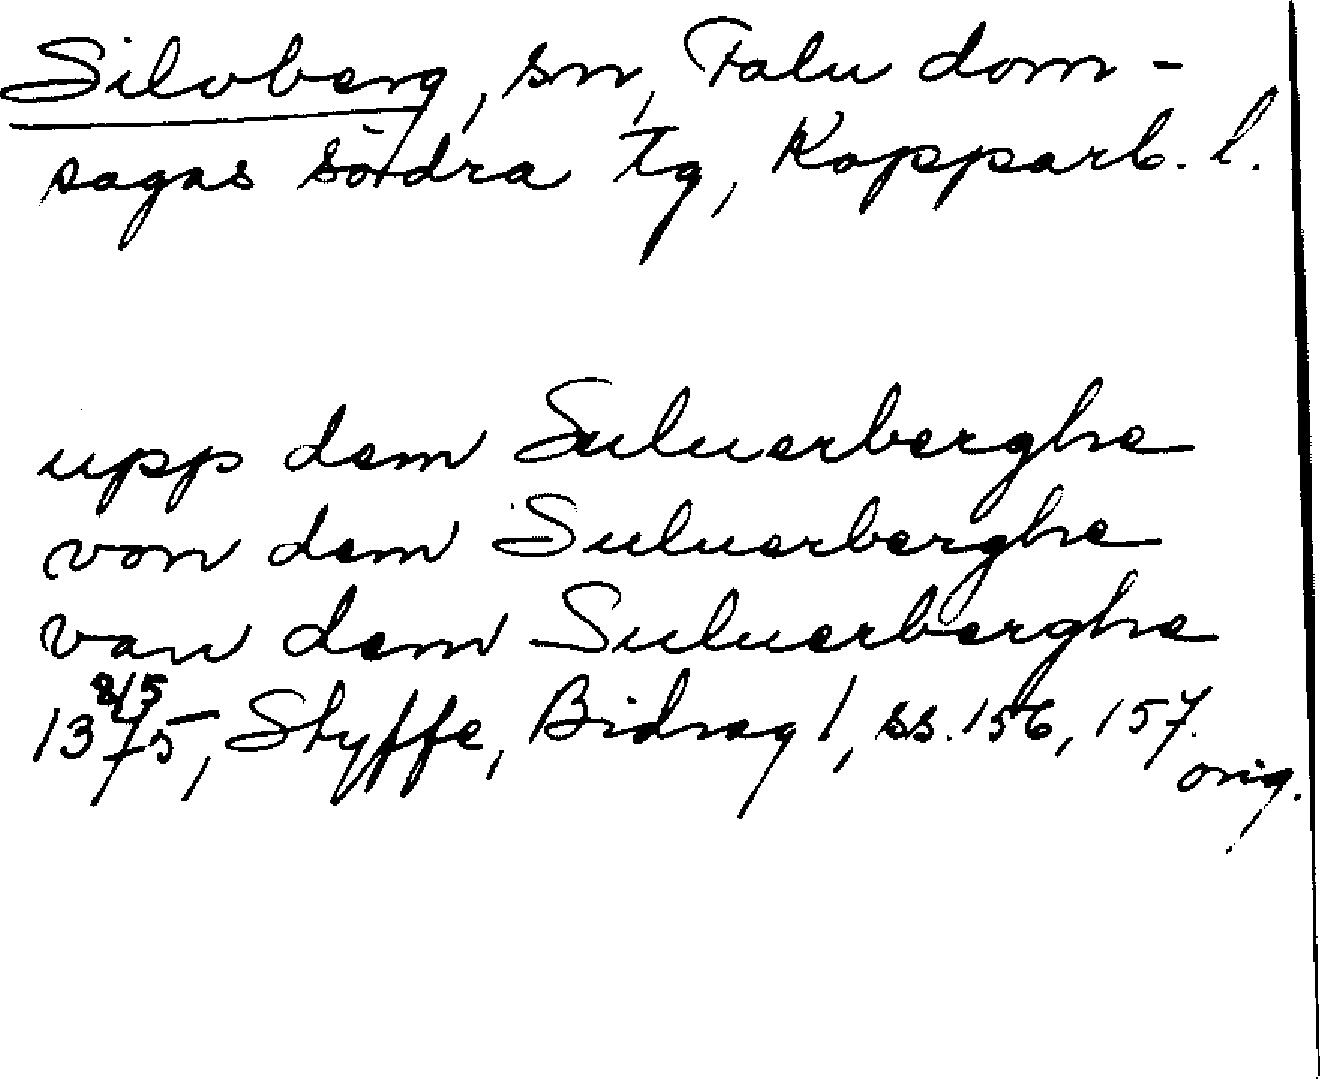 Silvberg, sn, Falu dom-
sagas södra tg, Kopparb. l.
upp dem Suluerberghe
von dem Suluerberghe
van dem Suluerberghe
13 8/5 75, Styffe, Bidrag 1, ss. 156, 157.
orig.